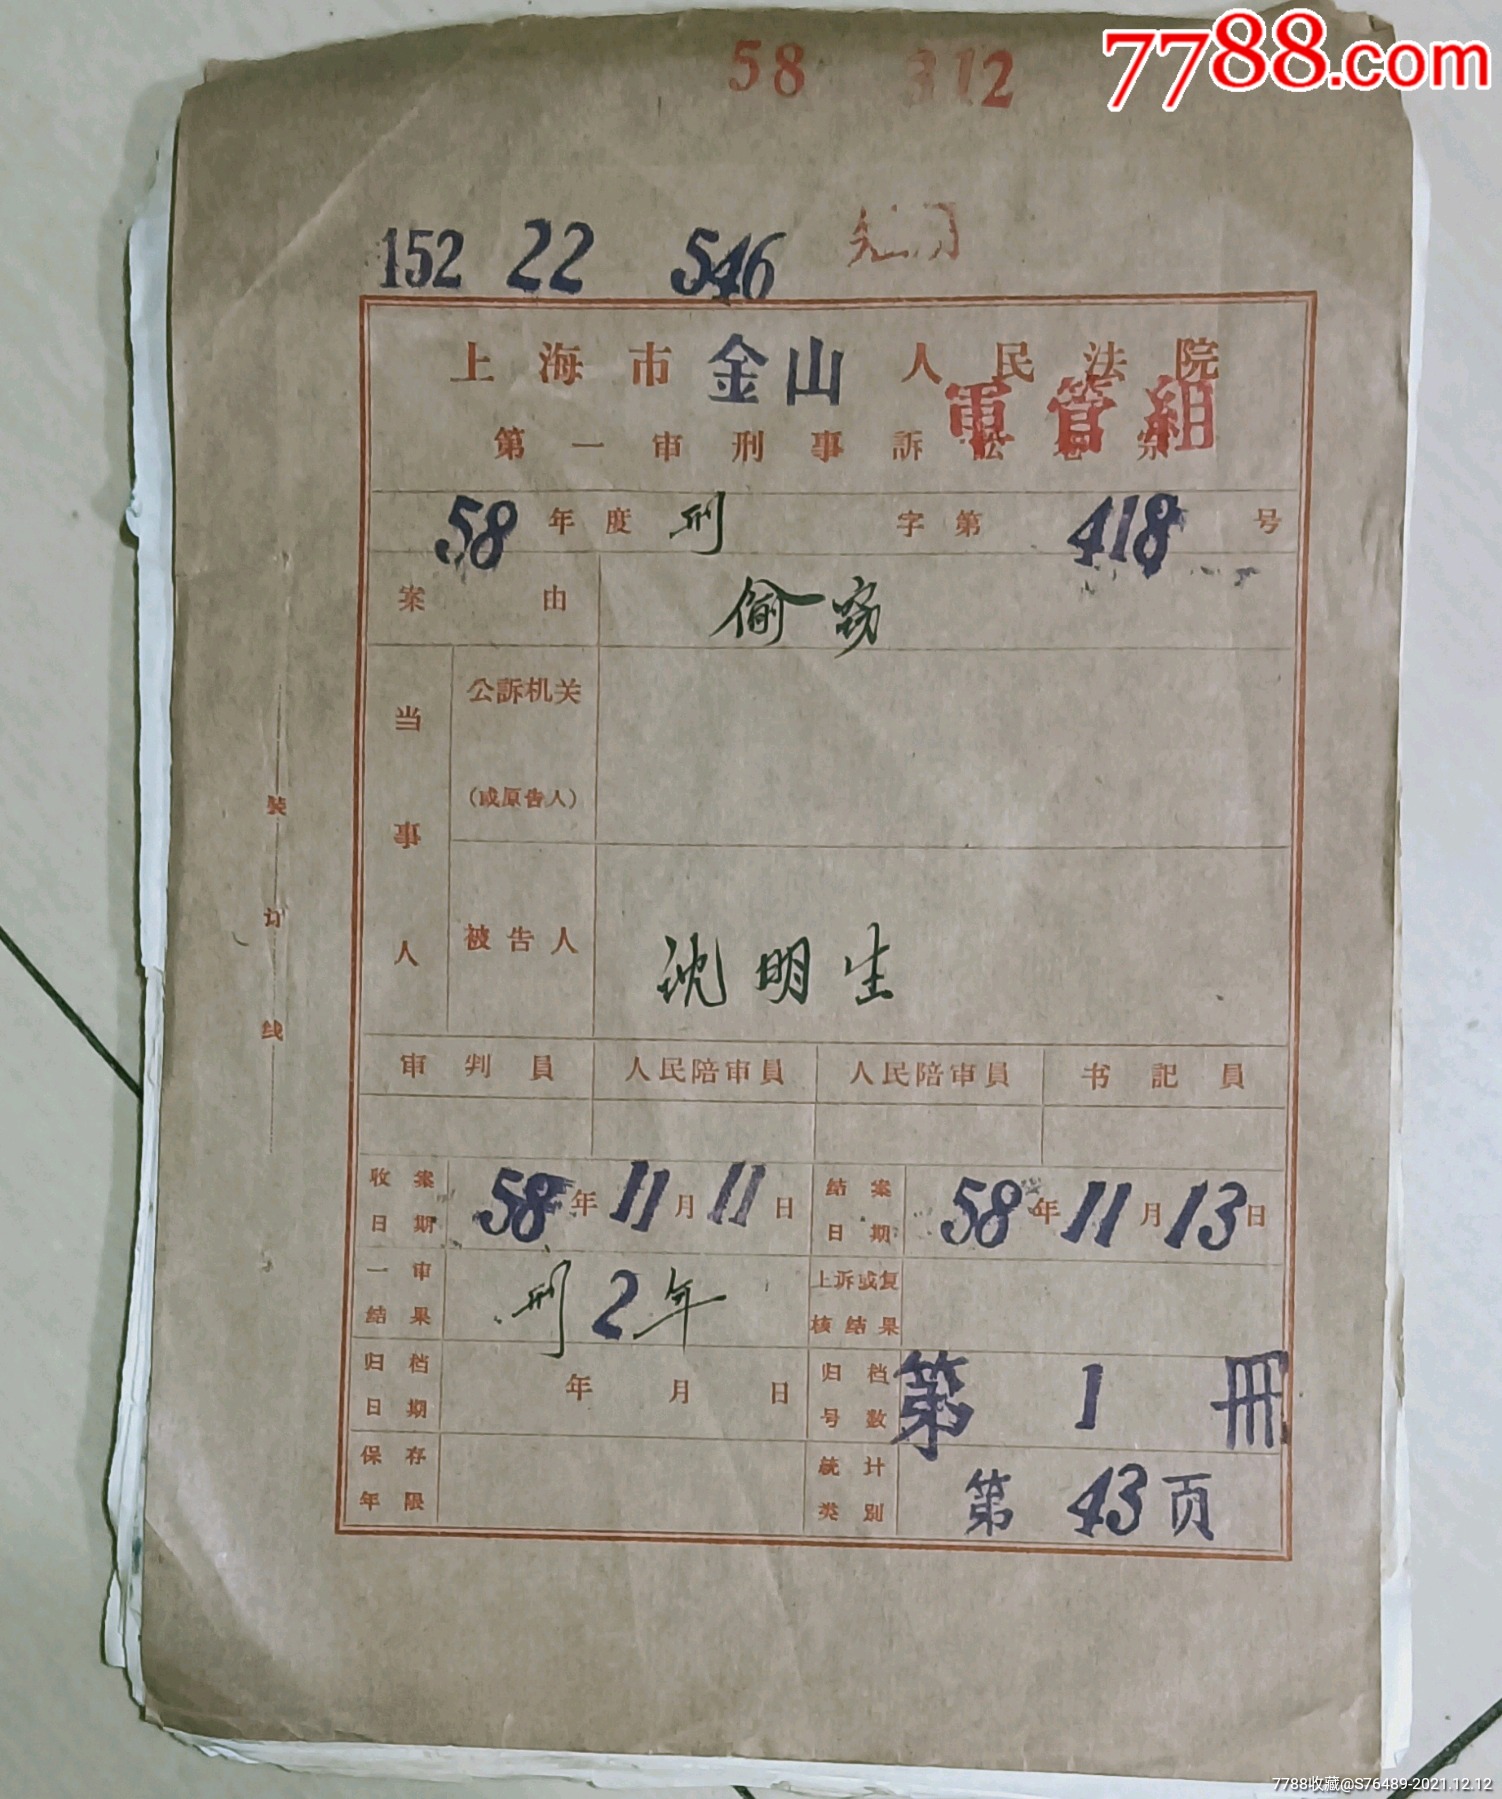 7788.com
58 312
152 22 546
上海市金山人民法院
軍管組
第一审刑事訴訟卷宗
58年度刑字第418号
案由 偷窃
当事人
公訴机关
(或原告人)
被告人 沈明生
审判員 人民陪审員 人民陪审員 书記員
收案日期 58年11月11日 结案日期 58年11月13日
一审结果 刑2年 上訴或复核结果
归档日期 年月日 归档号数 第1冊
保存年限 統计类別 第43页
装订线
7788收藏@S76489-2021.12.12